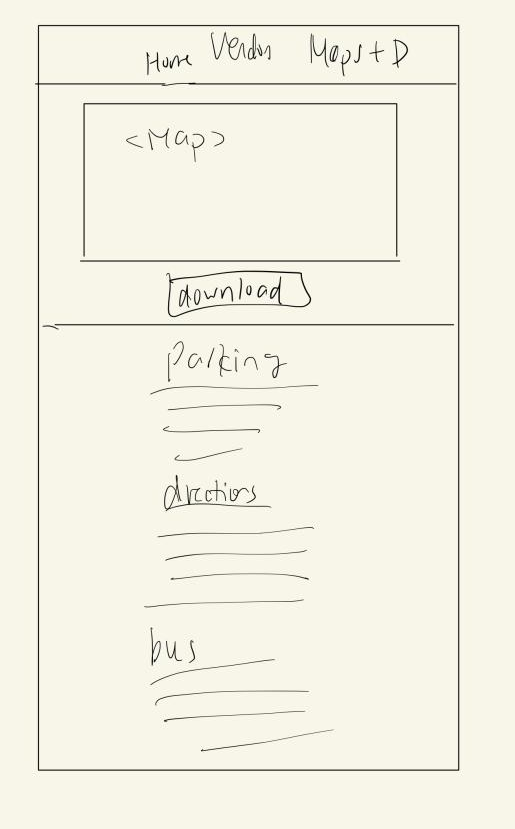 Home Vendors Maps + D
<Map>
download
Parking
directions
bus